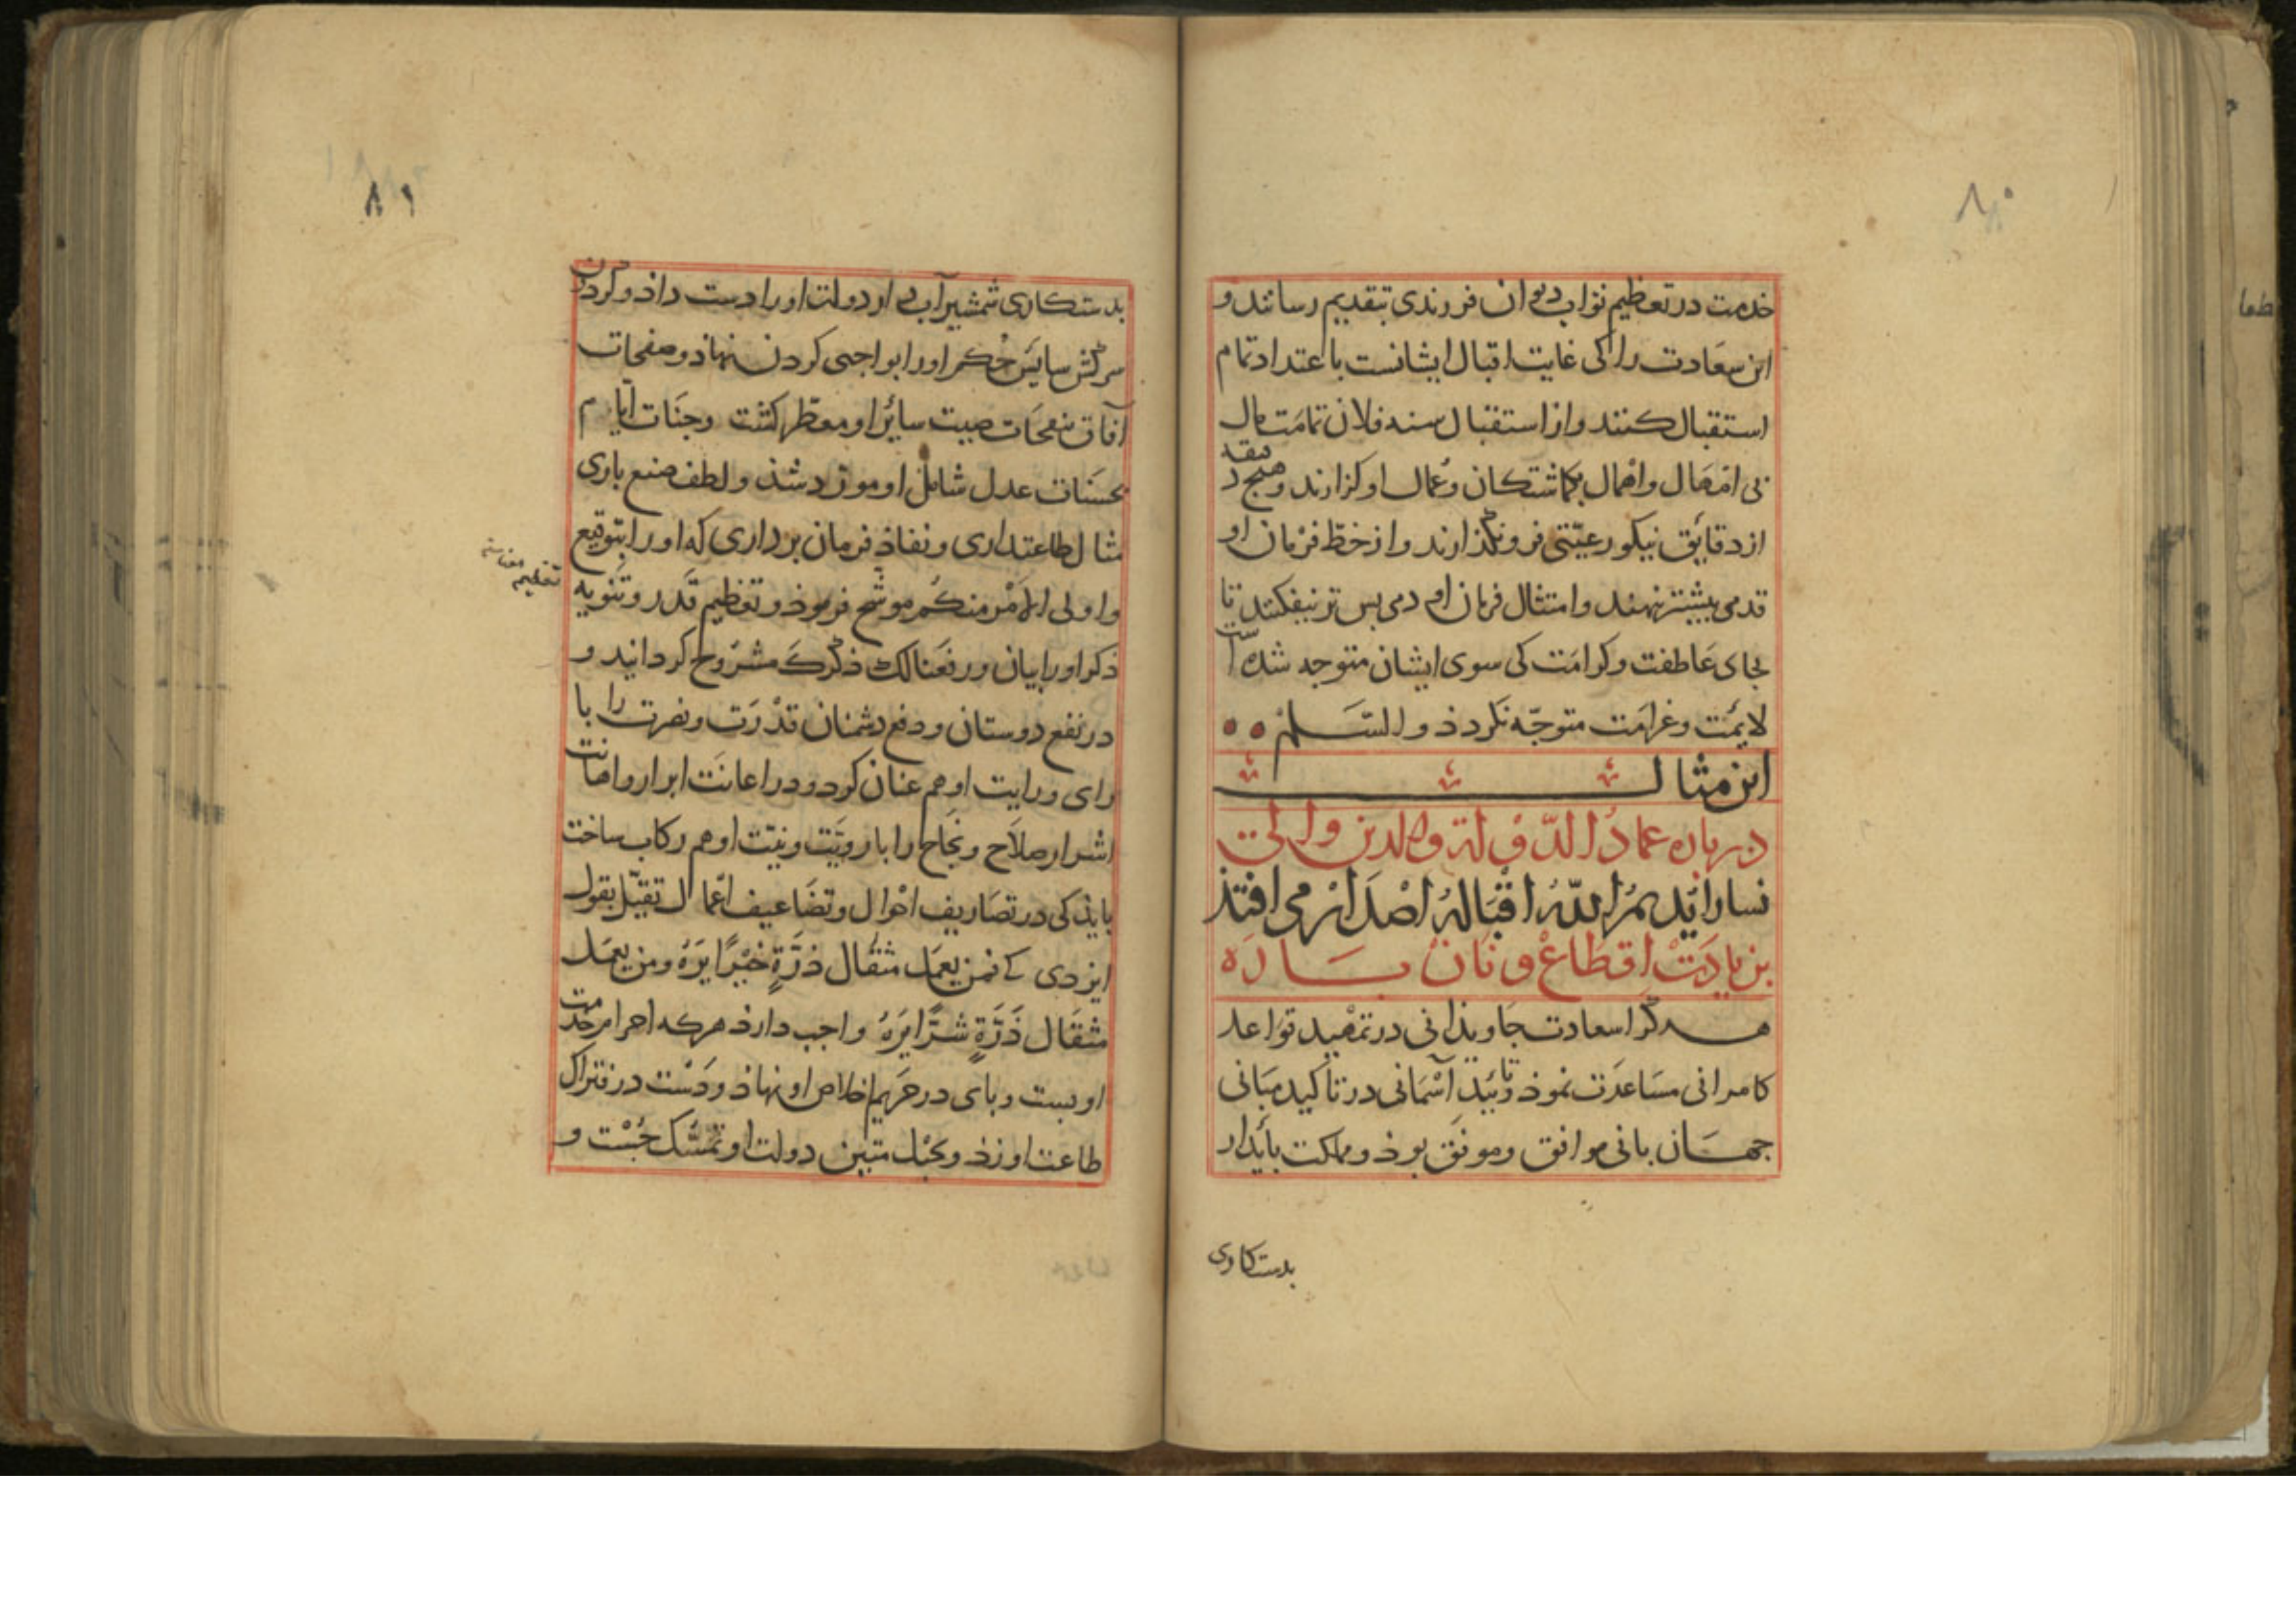 ۸۰
خدمت در تعظیم نواب دیوان فرزندی بتقدیم رسانند و
این سعادت را کی غایت اقبال ایشانست باعتداد تمام
استقبال کنند و از استقبال سنه فلان تمامت مال
بی امهال و اهمال بکماشتکان و عمال او کزارند و هیج دقیقه
از دقایق نیکو رعیّتی فرو نکذارند و از خطّ فرمان او
قدمی بیشتر ننهند و امتثال فرمان او دمی بس تر نیفکنند تا
بجای عاطفت و کرامَت کی سوی ایشان متوجه شده است
لایمَت و غرامَت متوجّه نکردذ والسَّلم
این مثال
در باره عمادُ الدّولة والدین والی
نسا ایّدهمُ اللّهُ اقبَالهُ اصْدَار می افتذ
بزیادَتْ اقطاعْ و نان بَارَه
هر کرا سعادت جاویذانی در تمهید قواعد
کامرانی مسَاعدَت نموذ و تائیذ آسْمَانی در تاکید مبَانی
جهانبانی موافق و موفّق بوذ و مملکت بایدار
بدستکاری
۸۱
بدستکاری شمشیر آب دار دولت او را دست داذ و کردن
سرکش سایس حُکم او را بواجبی کردن نهاذ و صفحات
آفاق بنفحَات صیت سائر او معطّر کشت و جنَات ایّام
بحسَنات عدل شامل او مورّد شذ و لطف صنع باری
مثال طاعتداری و نفاذ فرمان برداری که او را بتوقیع
و اولی الامْر منکُم موشّح فرموذ و تعظیم قَدر و تنویه
تفخیم
ذکر او را ببیان و رفعنا لک ذکرکَ مشرُوح کردانید و
در نفع دوستان و دفع دشمنان قدْرَت و نصرت را با
رای و رایت او هم عنان کرد و در اعانَت ابرار و اهانت
اشرار صلَاح و نجَاح را با رویَّت و نیّت او هم رکاب ساخت
بایذ کی در تصَاریف احْوال و تضَاعیف اعْمال تقیّل بقول
ایزدی که فمن یعمَل مثقَال ذرَّةٍ خَیْرًا یرَهُ و من یعمَل
مثقَال ذَرَّةٍ شرًّا یرَهُ واجب دارذ هرکه احرام خدمت
او بست و بای در حَریم اخلاص او نهاذ و دَسْت در فتراک
طاعت او زذ و بحَبْل متین دولت او تمسّک جُسْت و